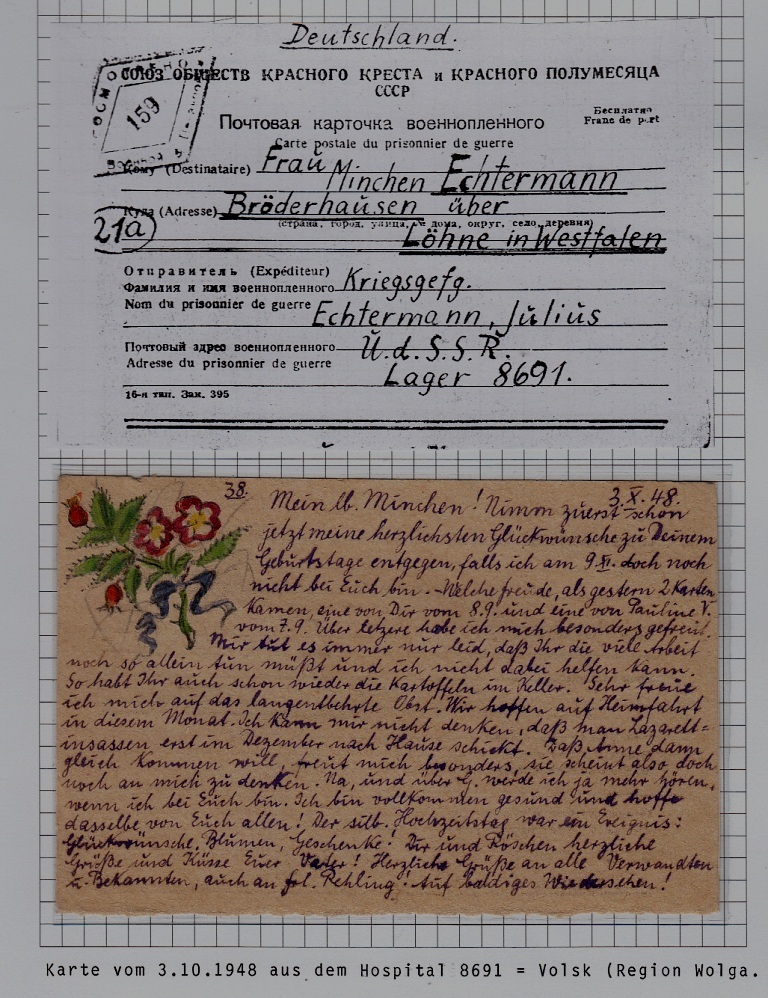 Deutschland.
СОЮЗ ОБЩЕСТВ КРАСНОГО КРЕСТА и КРАСНОГО ПОЛУМЕСЯЦА
СССР
159
Бесплатно
Franc de port
Почтовая карточка военнопленного
Carte postale du prisonnier de guerre
Кому (Destinataire) Frau
Minchen Echtermann
Куда (Adresse) Bröderhausen über
(страна, город, улица, № дома, округ, село, деревня)
21a
Löhne in Westfalen
Отправитель (Expéditeur)
Фамилия и имя военнопленного Kriegsgefg.
Nom du prisonnier de guerre Echtermann, Julius
Почтовый адрес военнопленного U.d.S.S.R.
Adresse du prisonnier de guerre
Lager 8691.
16-я тип. Зак. 395
38.
3.X.48.
Mein lb. Minchen! Nimm zuerst schon
jetzt meine herzlichsten Glückwünsche zu Deinem
Geburtstage entgegen, falls ich am 9. XI. doch noch
nicht bei Euch bin. Welche freude, als gestern 2 Karten
kamen, eine von Dir vom 8.9. und eine von Pauline V.
vom 7.9. Über letzere habe ich mich besonders gefreut.
Mir tut es immer nur leid, daß Ihr die viele Arbeit
noch so allein tun müßt und ich nicht dabei helfen kann.
So habt Ihr auch schon wieder die Kartoffeln im Keller. Sehr freue
ich mich auf das langentbehrte Obst. Wir hoffen auf Heimfahrt
in diesem Monat. Ich kann mir nicht denken, daß man Lazarett=
insassen erst im Dezember nach Hause schickt. Daß Anne dann
gleich kommen will, freut mich besonders, sie scheint also doch
noch an mich zu denken. Na, und über G. werde ich ja mehr hören,
wenn ich bei Euch bin. Ich bin vollkommen gesund und hoffe
dasselbe von Euch allen! Der silb. Hochzeitstag war ein Ereignis:
Glückwünsche, Blumen, Geschenke! Dir und Röschen herzliche
Grüße und Küsse Euer Vater! Herzliche Grüße an alle Verwandten
u. Bekannten, auch an frl. Rehling! Auf baldiges Wiedersehen!
Karte vom 3.10.1948 aus dem Hospital 8691 = Volsk (Region Wolga.